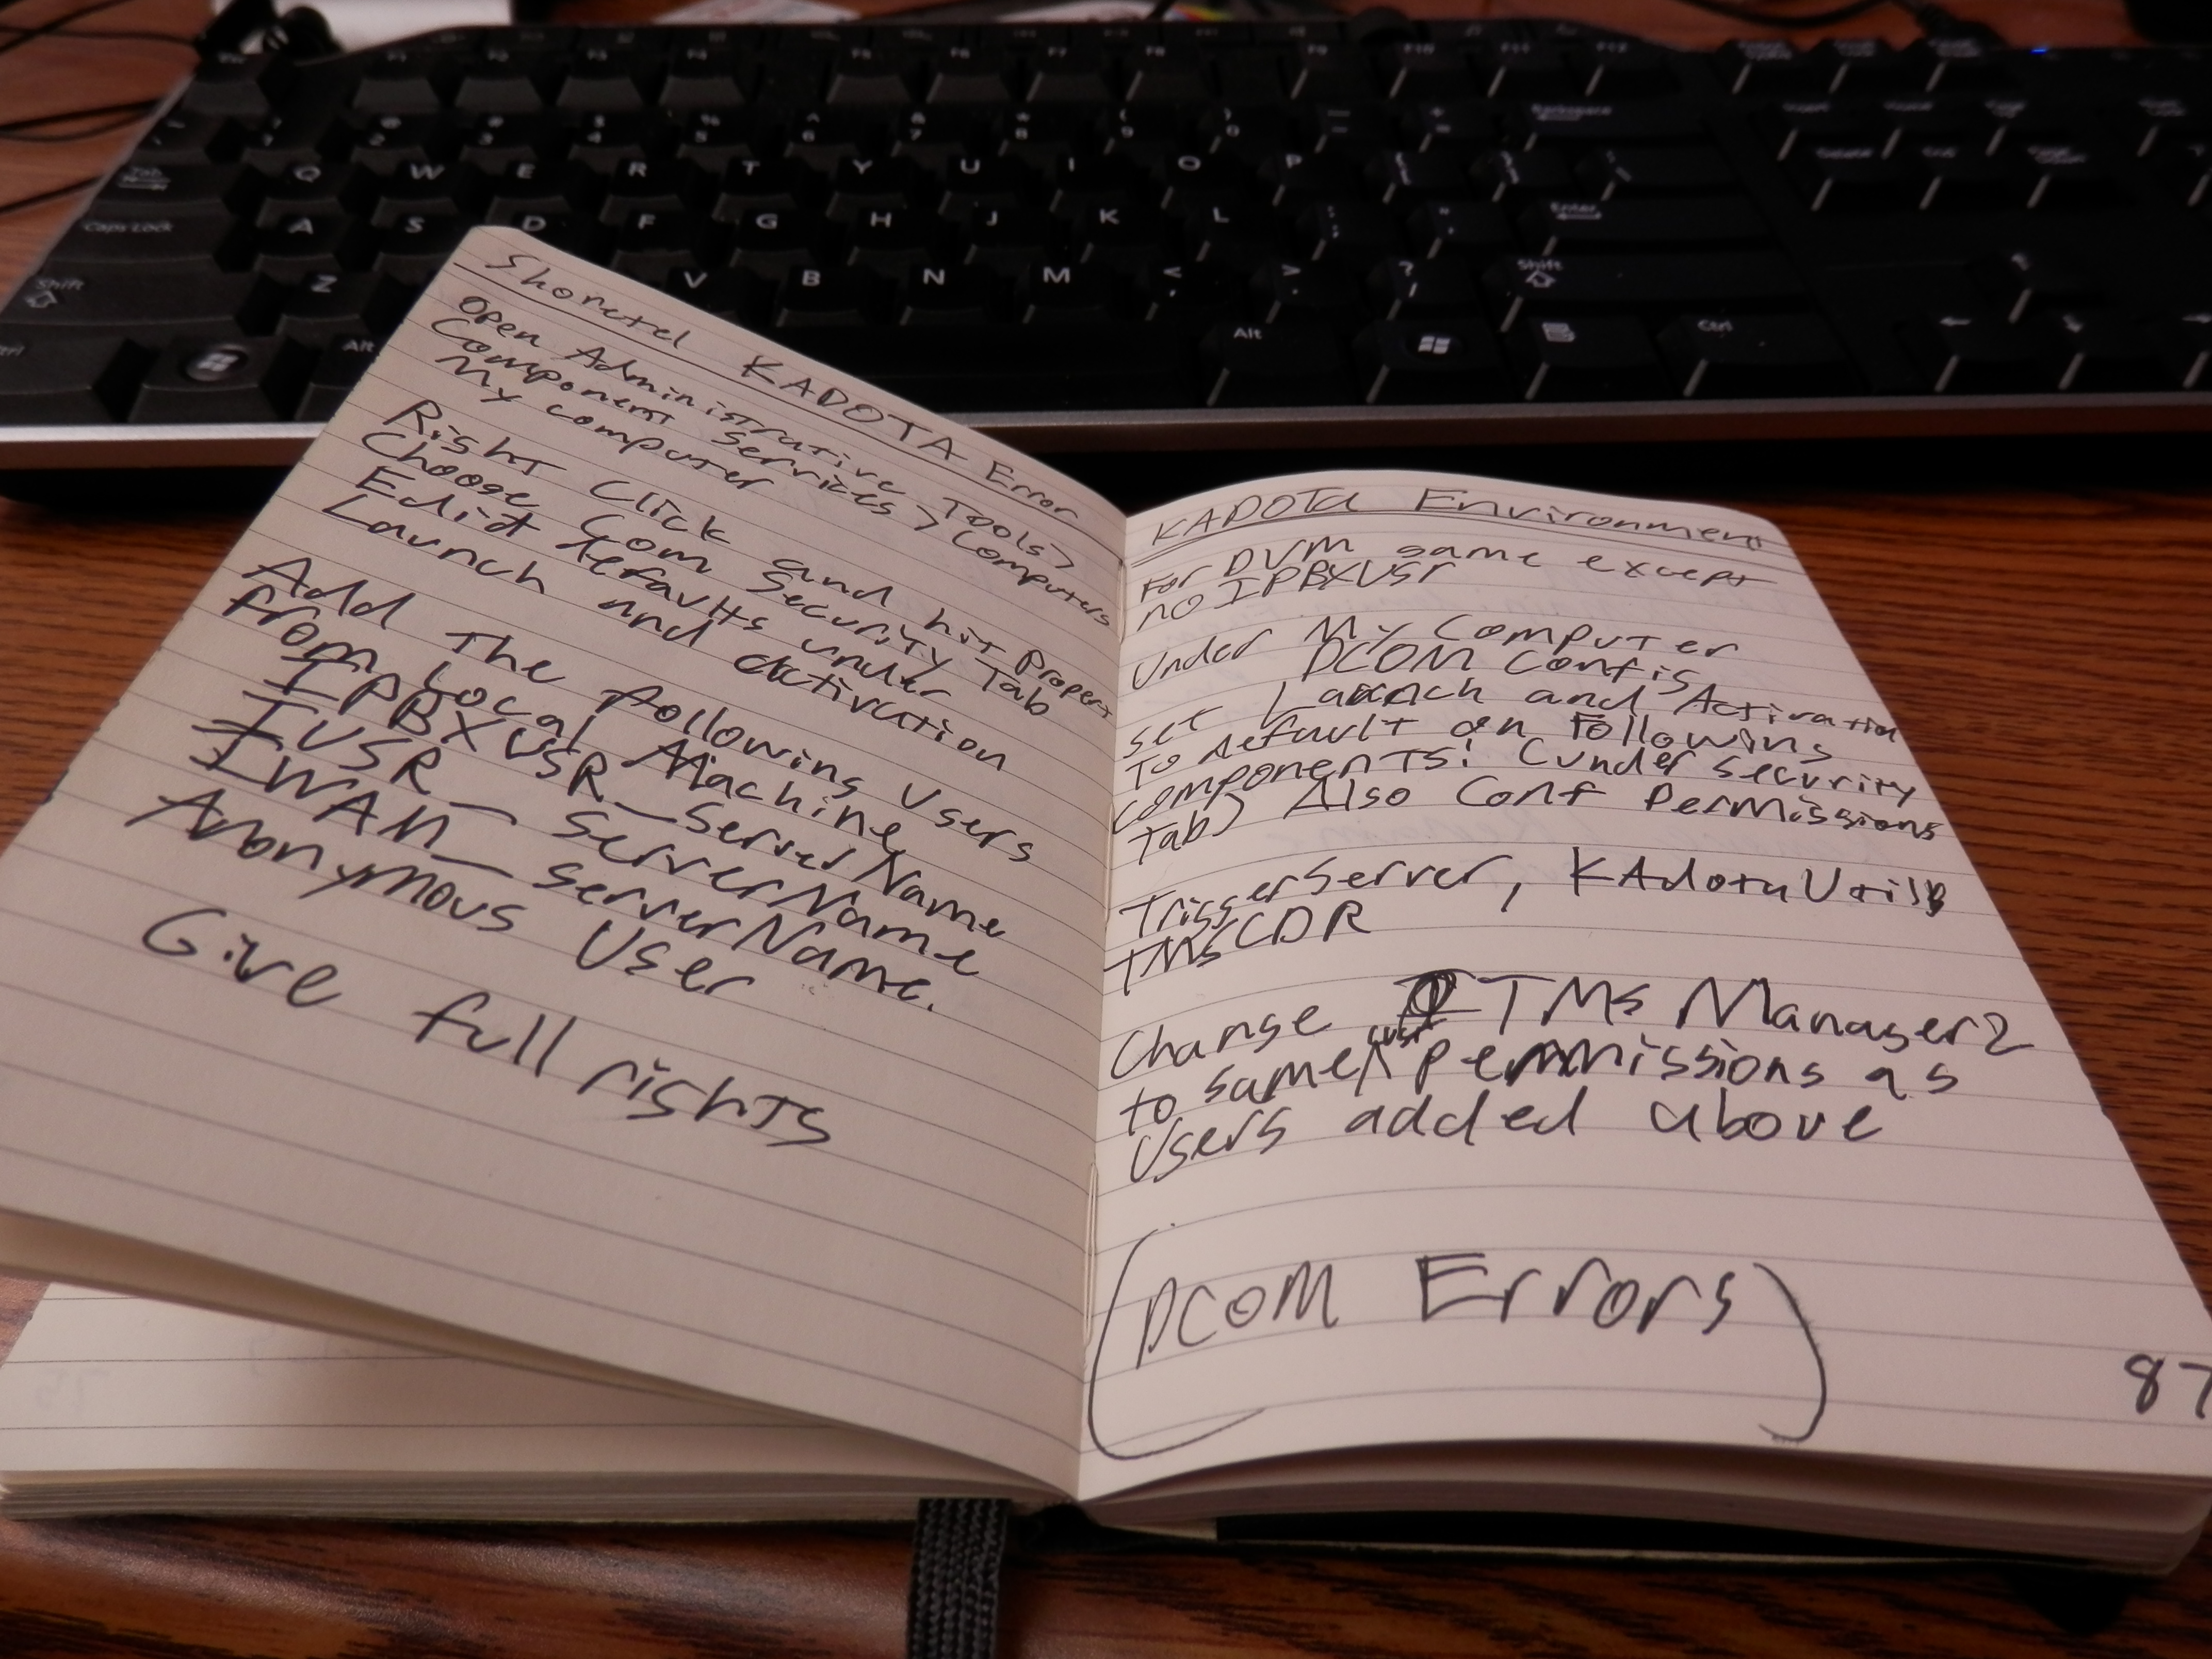 Shoretel KADOTA Error
Open Administrative Tools>
Component Services > Computers
My computer
Right Click and hit Propert
Choose Com Security Tab
Edit defaults under
Launch and activation
Add The following Users
From Local Machine
IPBXUSR_ServerName
IUSR_ServerName
IWAM_ServerName.
Anonymous User
Give full rights
KADOTA Environment
For DVM same except
no IPBXUSr
Under My Computer
DCOM Config
set Launch and Activation
To default on Following
components: (under security
Tab) Also Conf Permissions
TriggerServer, KAdotaUtil
TMSCDR
Change TMS Manager2
to same cust permissions as
Users added above
(DCOM Errors)
87
Q W E R T Y U I O P
Caps Lock A S D F G H J K L Enter
Shift Z V B N M < > ? Shift
Alt Alt Ctrl